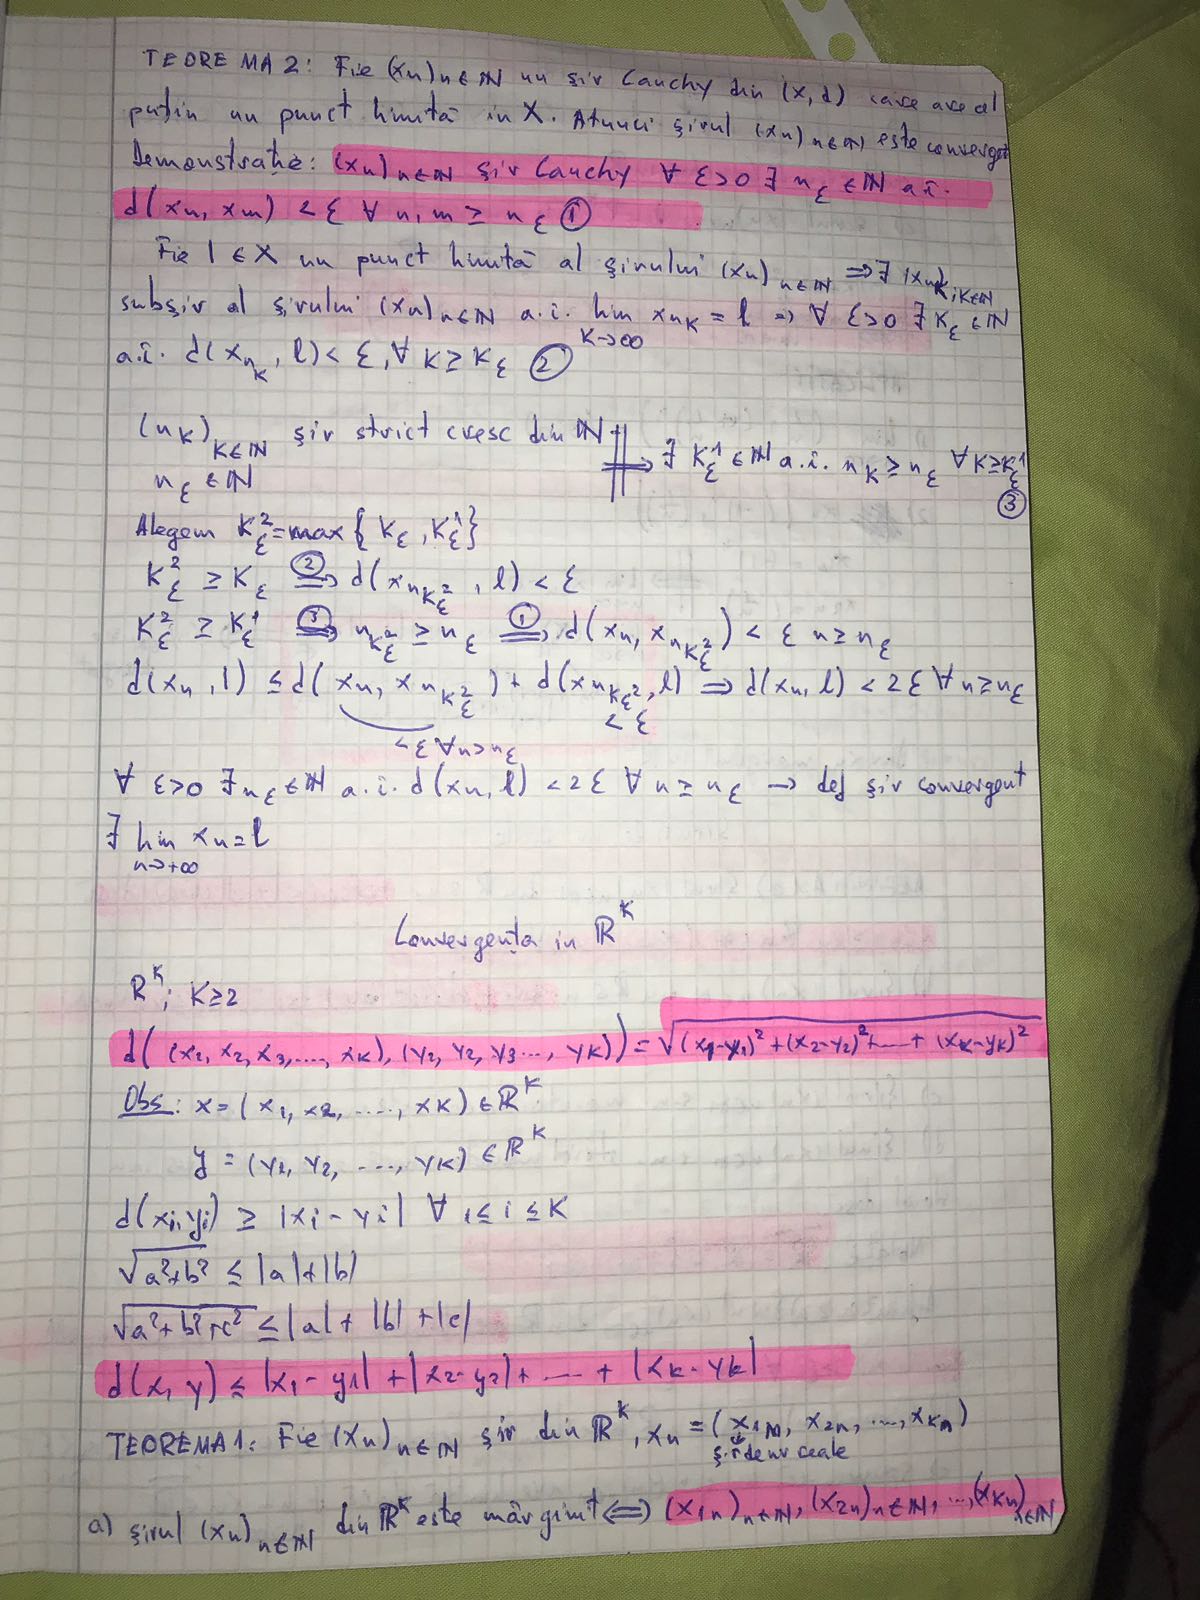 TEOREMA 2: Fie (xn)n∈ℕ un șir Cauchy din (X,d) care are al
puțin un punct limită in X. Atunci șirul (xn)n∈ℕ este convergent
Demonstrație: (xn)n∈ℕ șir Cauchy ∀ ε>0 ∃ nε ∈ℕ a.î.
d(xn, xm) <ε ∀ n,m ≥ nε ①
Fie l ∈ X un punct limită al șirului (xn)n∈ℕ ⇒ ∃ (xnk)k∈ℕ
subșir al șirului (xn)n∈ℕ a.î. lim xnk = l ⇒ ∀ ε>0 ∃ kε ∈ℕ
k→∞
a.î. d(xnk, l) < ε, ∀ k ≥ kε ②
(nk)k∈ℕ șir strict cresc din ℕ
nε ∈ℕ
⇒ ∃ kε¹ ∈ℕ a.î. nk ≥ nε ∀k≥kε¹
③
Alegem kε² = max{kε, kε¹}
kε² ≥ kε ②⇒ d(xnkε², l) < ε
kε² ≥ kε¹ ③⇒ nkε² ≥ nε ①⇒ d(xn, xnkε²) < ε n ≥ nε
d(xn, l) ≤ d(xn, xnkε²) + d(xnkε², l) ⇒ d(xn, l) < 2ε ∀ n≥nε
< ε
<ε ∀n>nε
∀ ε>0 ∃ nε∈ℕ a.î. d(xn, l) <2ε ∀ n ≥ nε → def șir convergent
∃ lim xn = l
n→+∞
Convergența in ℝᴷ
ℝᴷ; K≥2
d((x1, x2, x3, ..., xk), (y1, y2, y3..., yk)) = √((x1-y1)² + (x2-y2)² + ... + (xk-yk)²)
Obs: x = (x1, x2, ...., xk) ∈ ℝᴷ
y = (y1, y2, ..., yk) ∈ ℝᴷ
d(xi, yi) ≥ |xi - yi| ∀ 1≤ i ≤ K
√(a²+b²) ≤ |a|+|b|
√(a²+b²+c²) ≤ |a| + |b| + |c|
d(x, y) ≤ |x1 - y1| + |x2 - y2| + ... + |xk - yk|
TEOREMA 1: Fie (xn)n∈ℕ șir din ℝᴷ, xn = (x1n, x2n, ..., xkn)
șir de nr reale
a) șirul (xn)n∈ℕ din ℝᴷ este mărginit ⇔ (x1n)n∈ℕ, (x2n)n∈ℕ, ..., (xkn)n∈ℕ